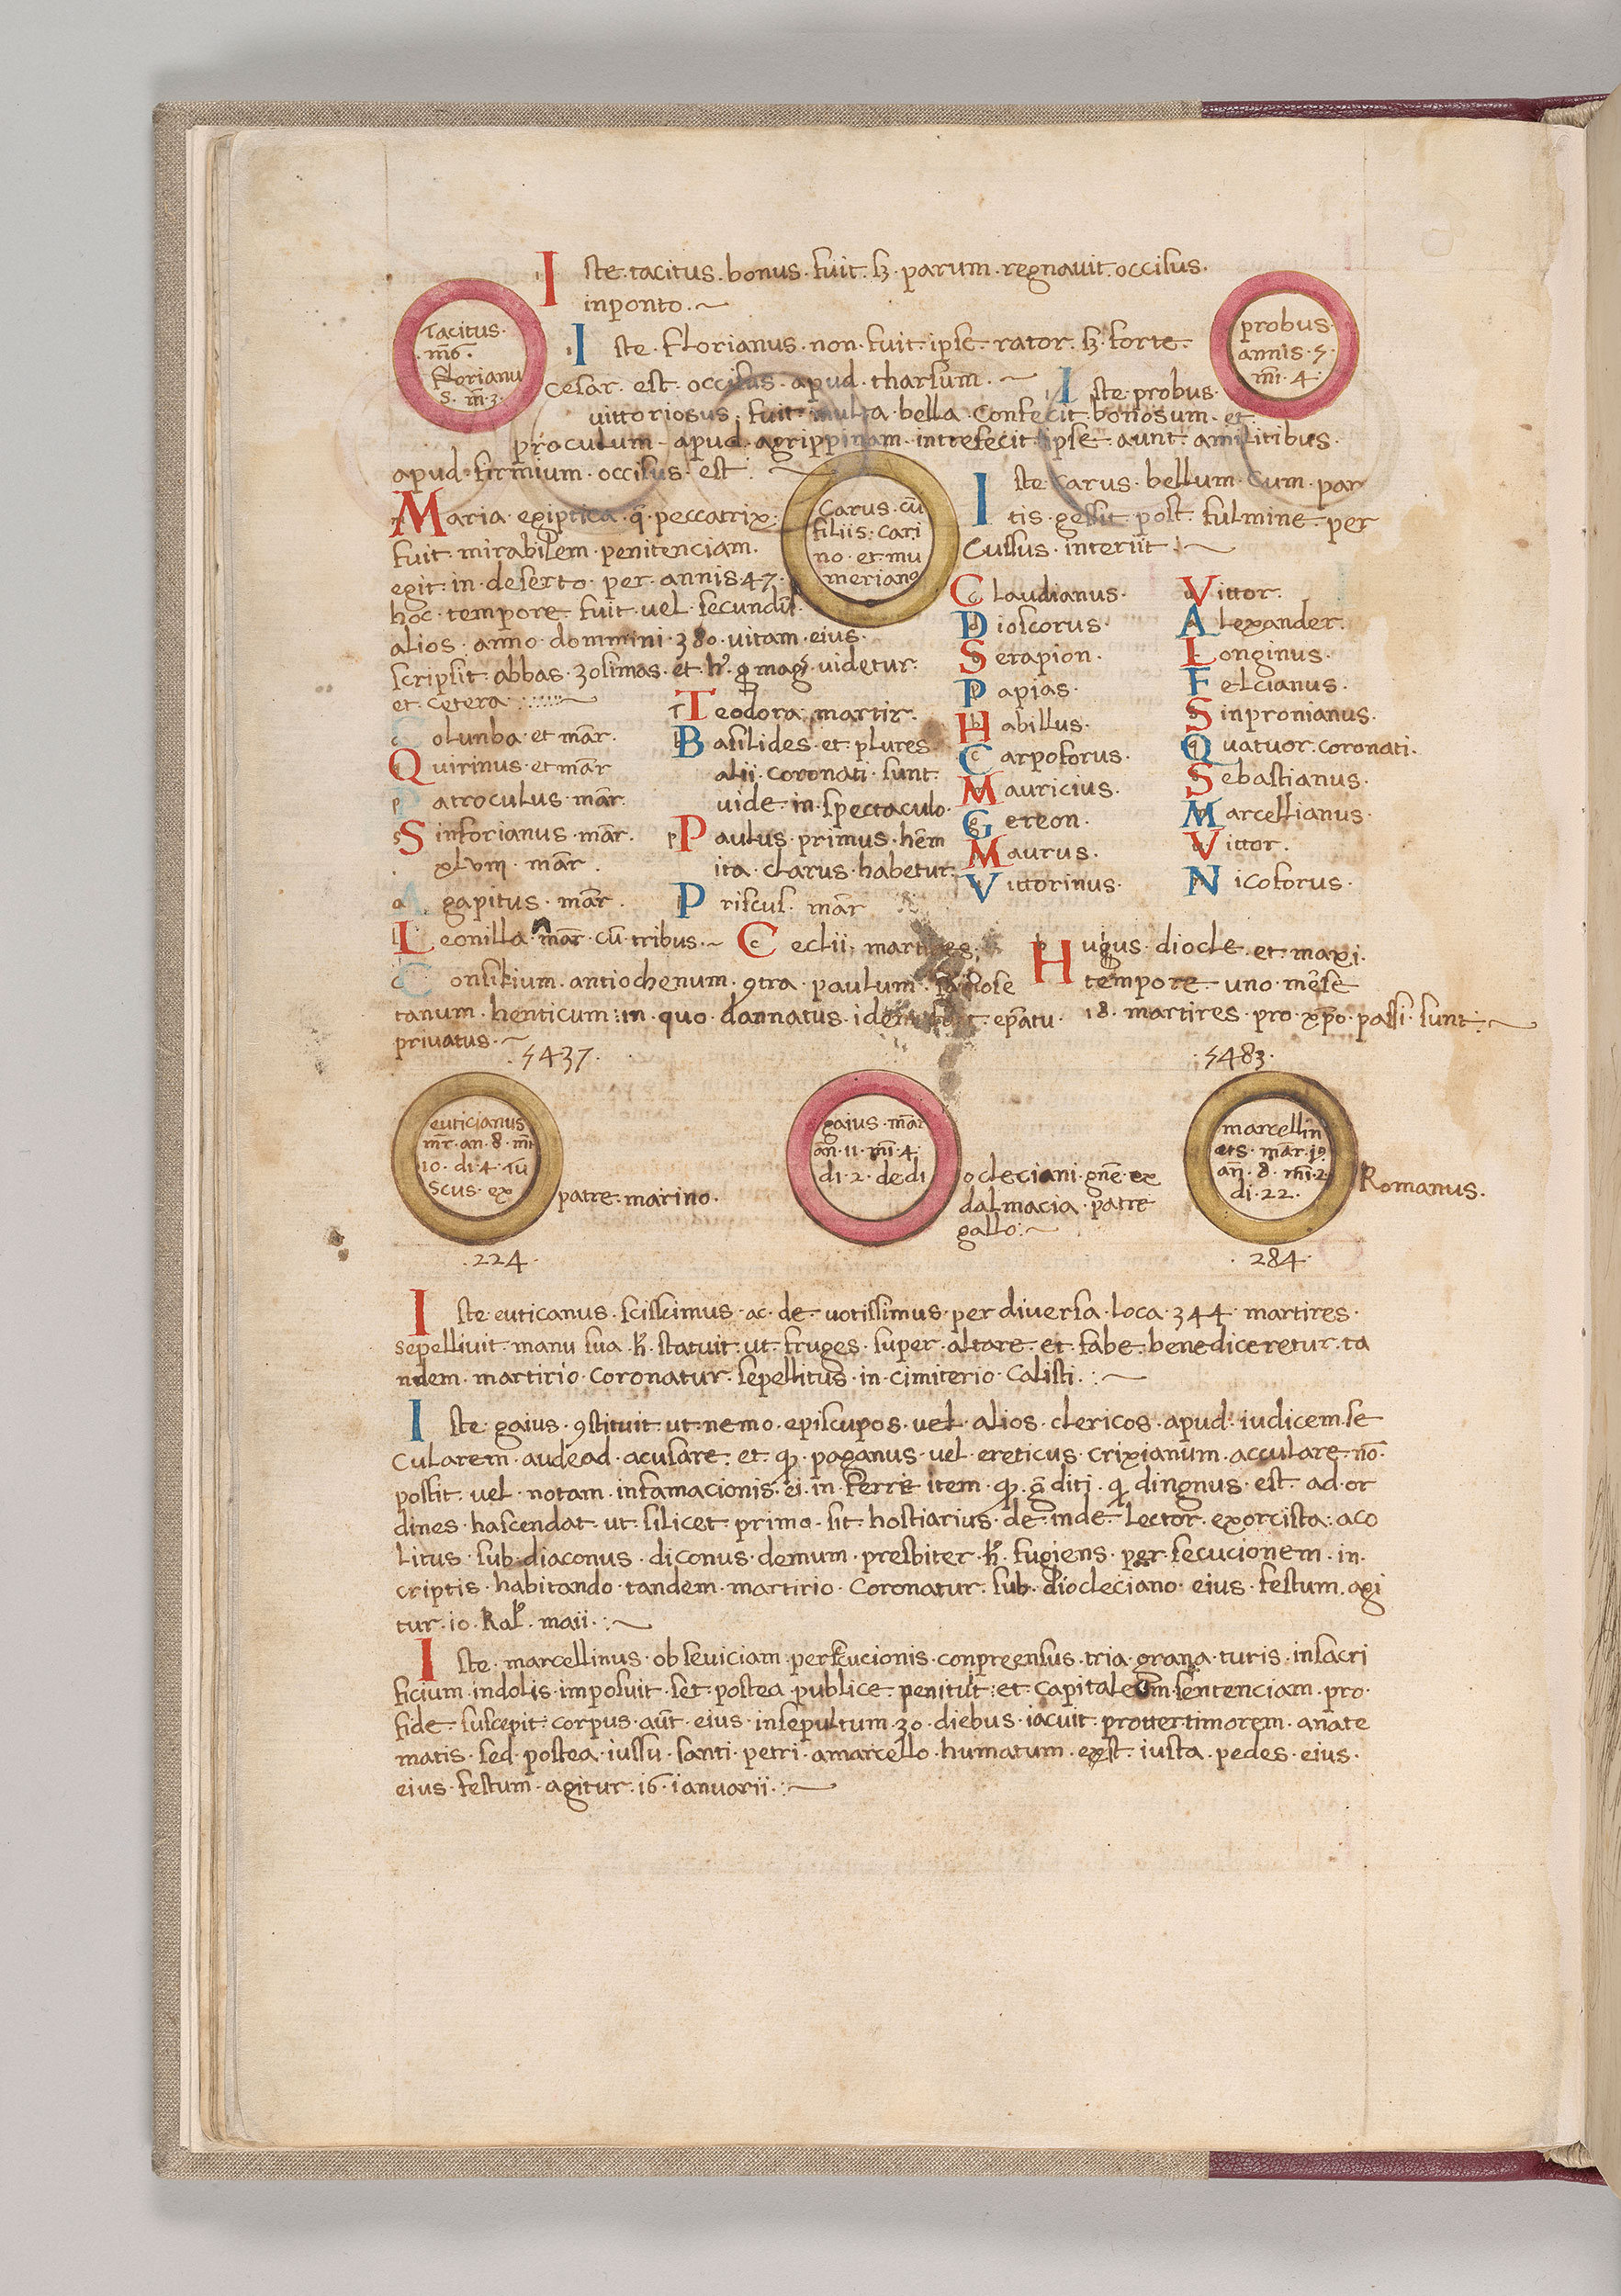 Iste · tacitus · bonus · fuit · sʒ · parum · regnauit · occisus ·
inponto · ~
tacitus ·
· m̄6 ·
florianu
s · m̄ · 3 ·
Iste · florianus · non · fuit · ipse · rator · sʒ · forte ·
cesar · est · occisus · apud · tharsum · ~
probus ·
annis · 5 ·
m̄i · 4 :
Iste · probus ·
vittoriosus · fuit · multa · bella · confecit · bonosum · et
proculum · apud · agrippinam · intrefecit · ipse · aunt · amilitibus ·
apud · firmium · occisus · est : ~
Carus · cū
filiis : cari
no · et · nu
meriano
Iste · carus · bellum · cum · par
tis · gessit · post · fulmine · per
cussus · interiit · ~
Maria · egiptica · q̄ · peccatrix :
fuit · mirabilem · penitenciam ·
egit · in · deserto · per · annis · 47 ·
hoc · tempore · fuit · vel · secundū
alios : anno · dommini · 380 · vitam · eius ·
scripsit · abbas · zosimas · et · · mag · videtur :
et · cetera ~
Colunba · et · mār ·
Quirinus · et · mār
Patroculus · mār ·
Sinforianus · mār ·
mār ·
Agapitus · mār ·
Teodora · martir ·
Basilides · et · plures
alii · coronati · sunt ·
uide · in · spectaculo ·
Paulus · primus · hēm
ita · clarus · habetur ·
Priscus · mār
Claudianus ·
Dioscorus ·
Serapion ·
Papias ·
Habillus ·
Carpoforus ·
Mauricius ·
Gereon ·
Maurus ·
Vittorinus ·
Vittor ·
Alexander ·
Longinus ·
Felcianus ·
Sinpronianus ·
Quatuor · coronati ·
Sebastianus ·
Marcellianus ·
Vittor ·
Nicoforus ·
Leonilla · mār · cū · tribus · ~
Ceclii ·
Hugus · diocle · et · maxi ·
tempore · uno · mēse
18 · martires · pro · xp̄o · passi · sunt : ~
Consilium · antiochenum · 9tra · paulum ·
tanum · henticum : in · quo · dannatus · ep̄atu ·
privatus · ~
· 5437 ·
· 5483 ·
euticianus
m̄r · an · 8 · m̄i
10 · di · 4 · tū
scus · ex
patre · marino ·
gaius · mār
an̄ · 11 · m̄i · 4 ·
di · 2 · de di
ocleciani · gn̄e · ex
dalmacia · patre
gallo : ~
marcellin
· mār ·
an̄ · 8 · m̄i · 2
di · 22 ·
Romanus ·
· 224 ·
· 284 ·
Iste · euticanus · scissimus · ac · de · uotissimus · per diuersa · loca · 344 · martires ·
sepelliuit · manu sua · statuit · ut · fruges · super · altare · et · fabe · benediceretur · ta
ndem · martirio · coronatur · sepellitus · in · cimiterio · Calisti · : ~
Iste · gaius · 9stituit · ut · nemo · episcupos · uel · alios · clericos · apud · iudicem · se
cularem · audead · acusare : et · · paganus · vel · ereticus · crixianum · acculare · nō ·
possit · vel · notam · infamacionis · ei · in · item · · dingnus · est · ad · or
dines · hascendat · ut · silicet · primo · sit · hostiarius · de · inde · lector · exorcista : aco
litus · sub · diaconus · diconus · demum · presbiter · fugiens · per · secucionem · in ·
criptis · habitando · tandem · martirio · coronatur · sub · diocleciano · eius · festum · agi
tur · 10 · kal · maii · : ~
Iste · marcellinus · ob seuiciam · persecucionis · conpreensus · tria · grana · turis · in sacri
ficium · indolis · imposuit · set · postea · publice · penituit : et · capitalem · sentenciam · pro ·
fide · suscepit : corpus · aūt · eius · insepultum · 30 · diebus · iacuit · timorem · anate
matis · sed · postea · iussu · santi · petri · amarcello · humatum · est · iusta · pedes · eius ·
eius · festum · agitur · 16 · ianuarii · : ~